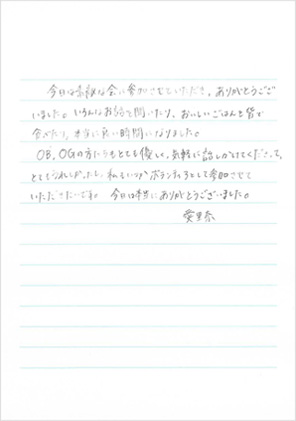 今日は素敵な会に参加させていただき、ありがとうござ
いました。いろんなお話を聞いたり、おいしいごはんを皆で
食べたり、本当に良い時間になりました。
OB、OGの方たちもとても優しく、気軽に話しかけてくださって、
とてもうれしかったし、私もいつかボランティアとして参加させて
いただきたいです。今日は本当にありがとうございました。
愛里奈